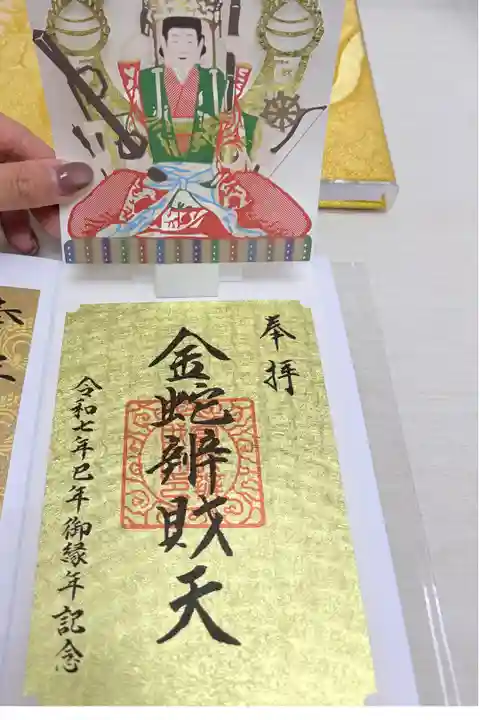 奉拝
金蛇辨財天
令和七年巳年御縁年記念
奉